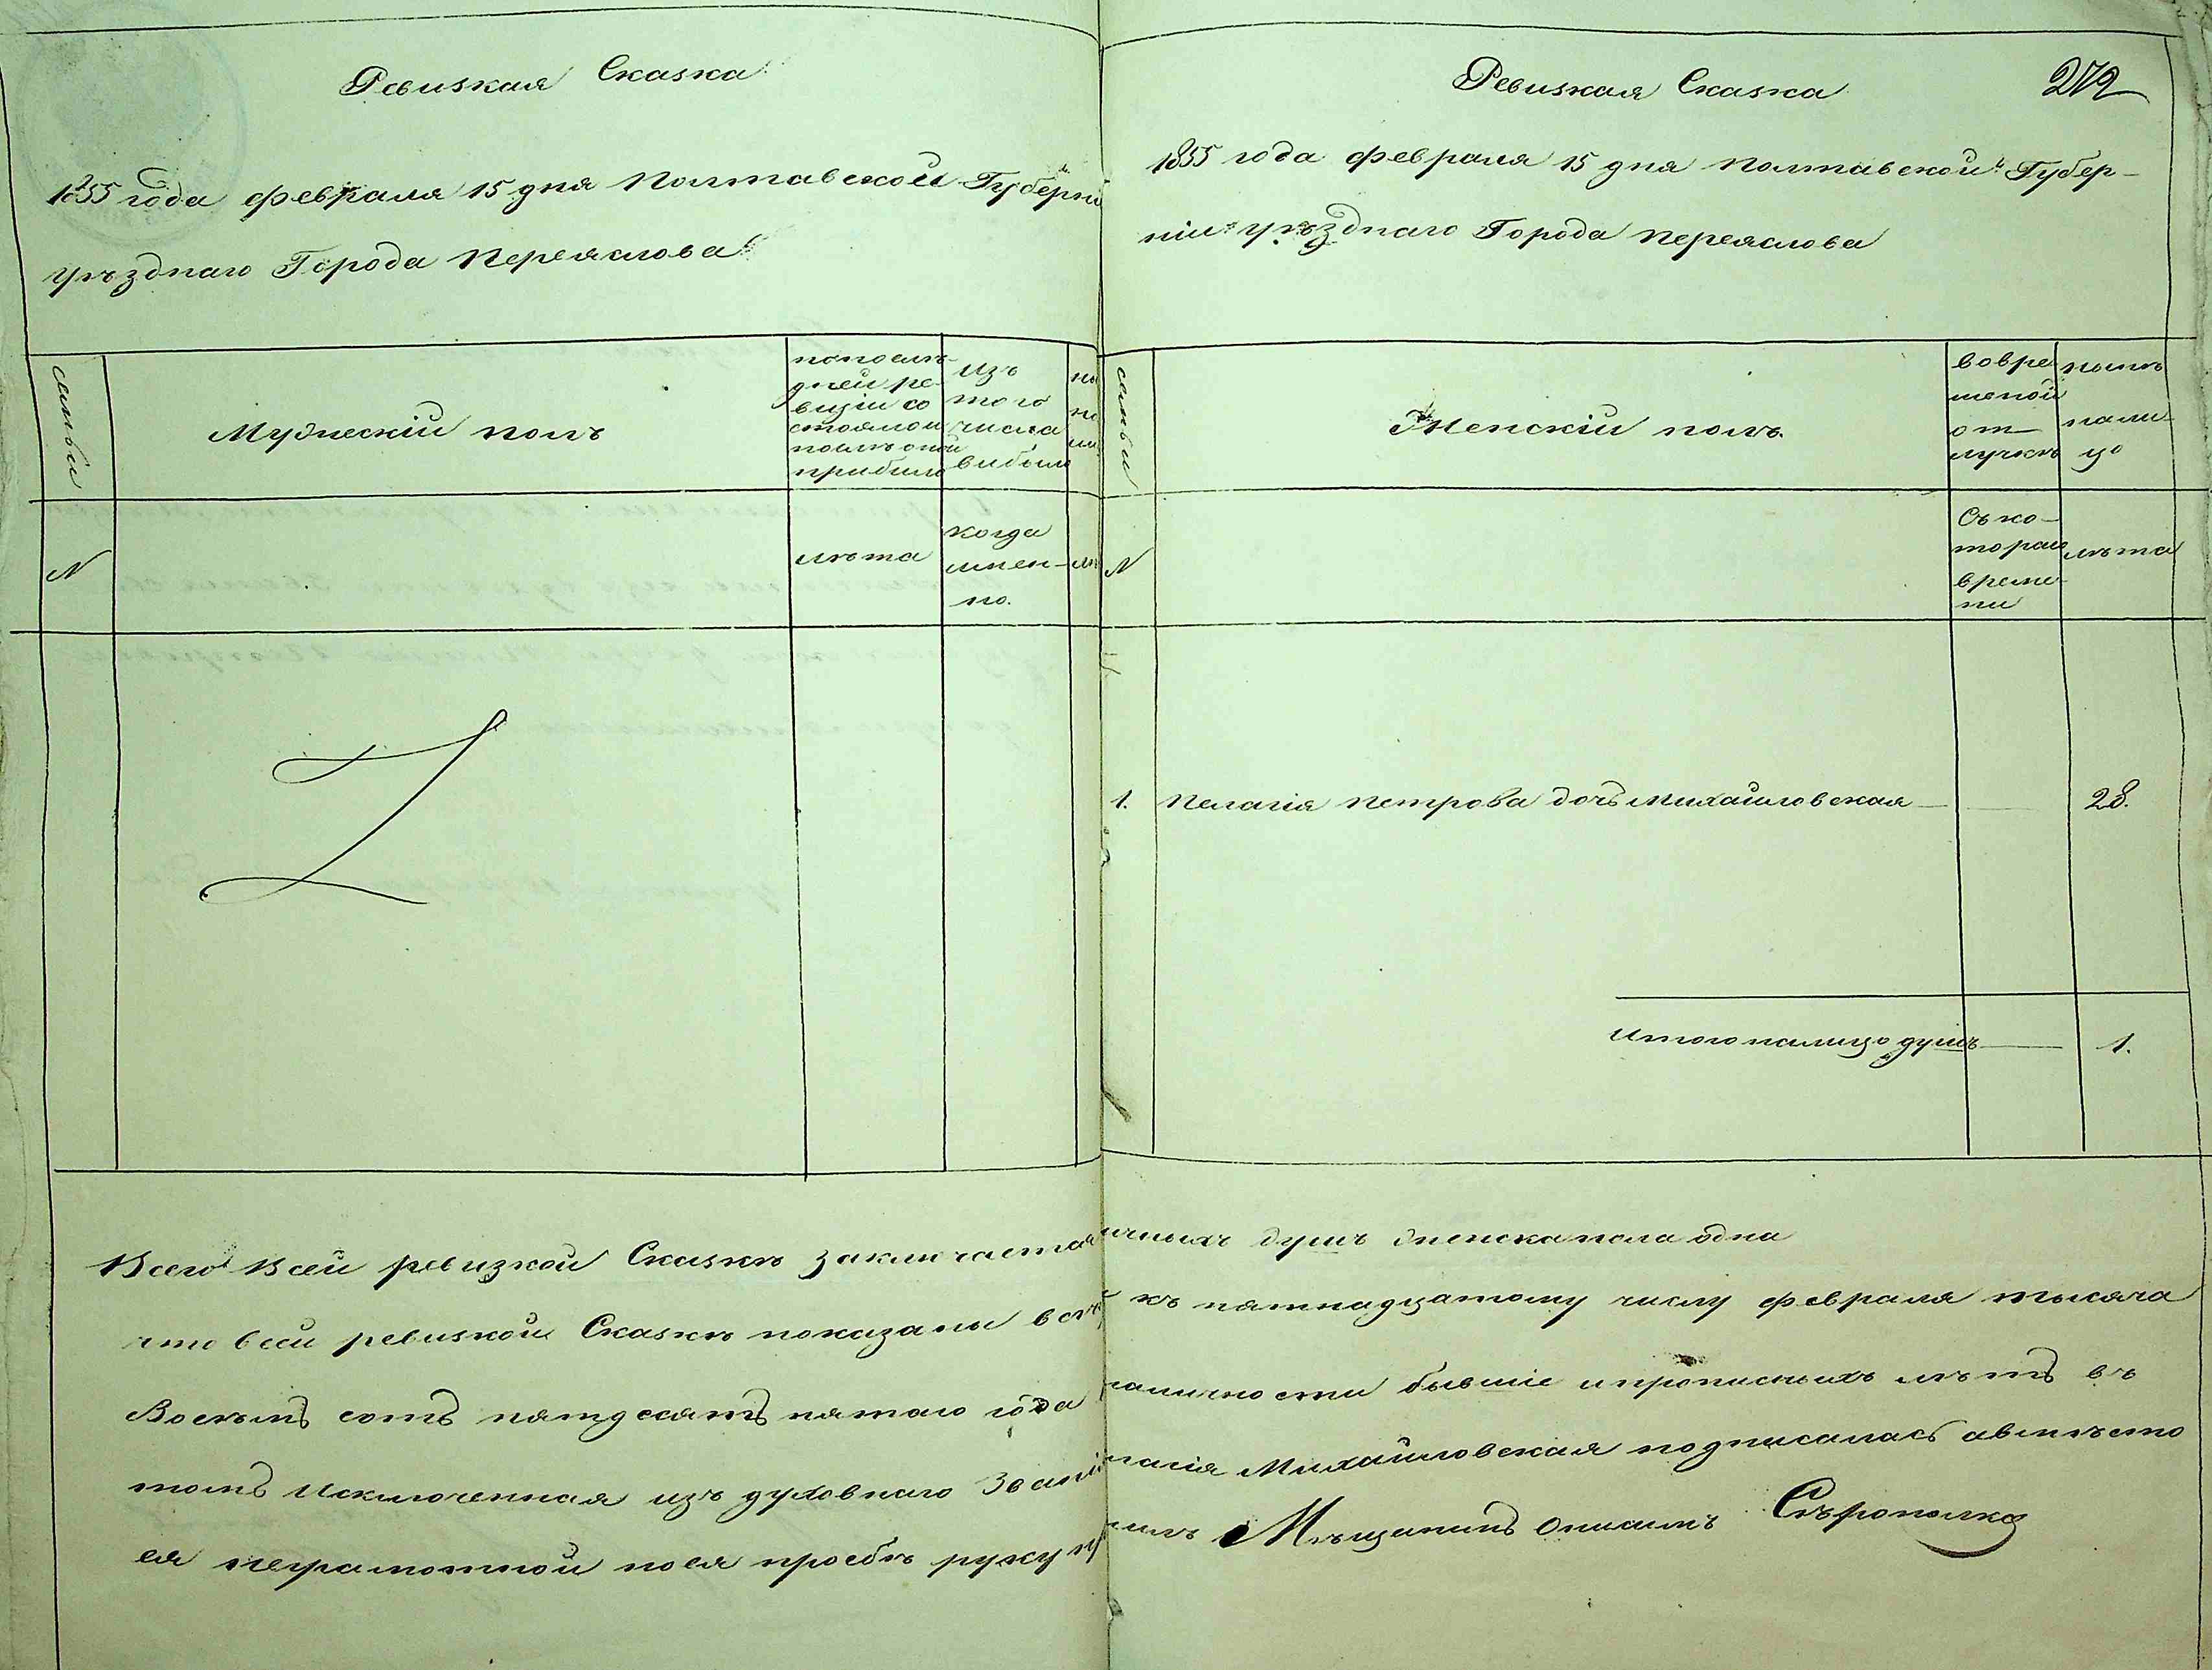 Ревизкая Сказка
1855 года февраля 15 дня Полтавской Губерні
уѣзднаго Города Переяслова
семьи
Мужескій полъ
попослѣ-
дней ре-
визіи со
стоялои
послѣ оной
прибыло
Изъ
того
числа
выбыло
N
лѣта
когда
имен-
но.
Ревизкая Сказка
272
1855 года февраля 15 дня Полтавской Губер-
ніи уѣзднаго Города Переяслова
семьи
Женскій полъ.
вовре
меной
от
лучкѣ
нынѣ
нали-
цо
N
Съ ко-
тораго
време-
ни
лѣта
1. Пелагія Петрова дочъ Михайловская 28.
Итого налицо душъ 1.
Всего Всей ревизкой Сказкѣ заключается
ичныхъ душъ женска пола одна
что всей ревизкой Сказкѣ показаны всѣ
къ пятнадцатому числу февраля тысяча
Восемъ сотъ пятдесятъ пятаго года
наличности бывшіе и прописныхъ нѣтъ въ
томъ Исключенная изъ духовнаго Званія
лагія Михайловская подписаласъ авмѣсто
ея неграмотной поея просбѣ руку
Мѣщанинъ Онисимъ Сѣрополко